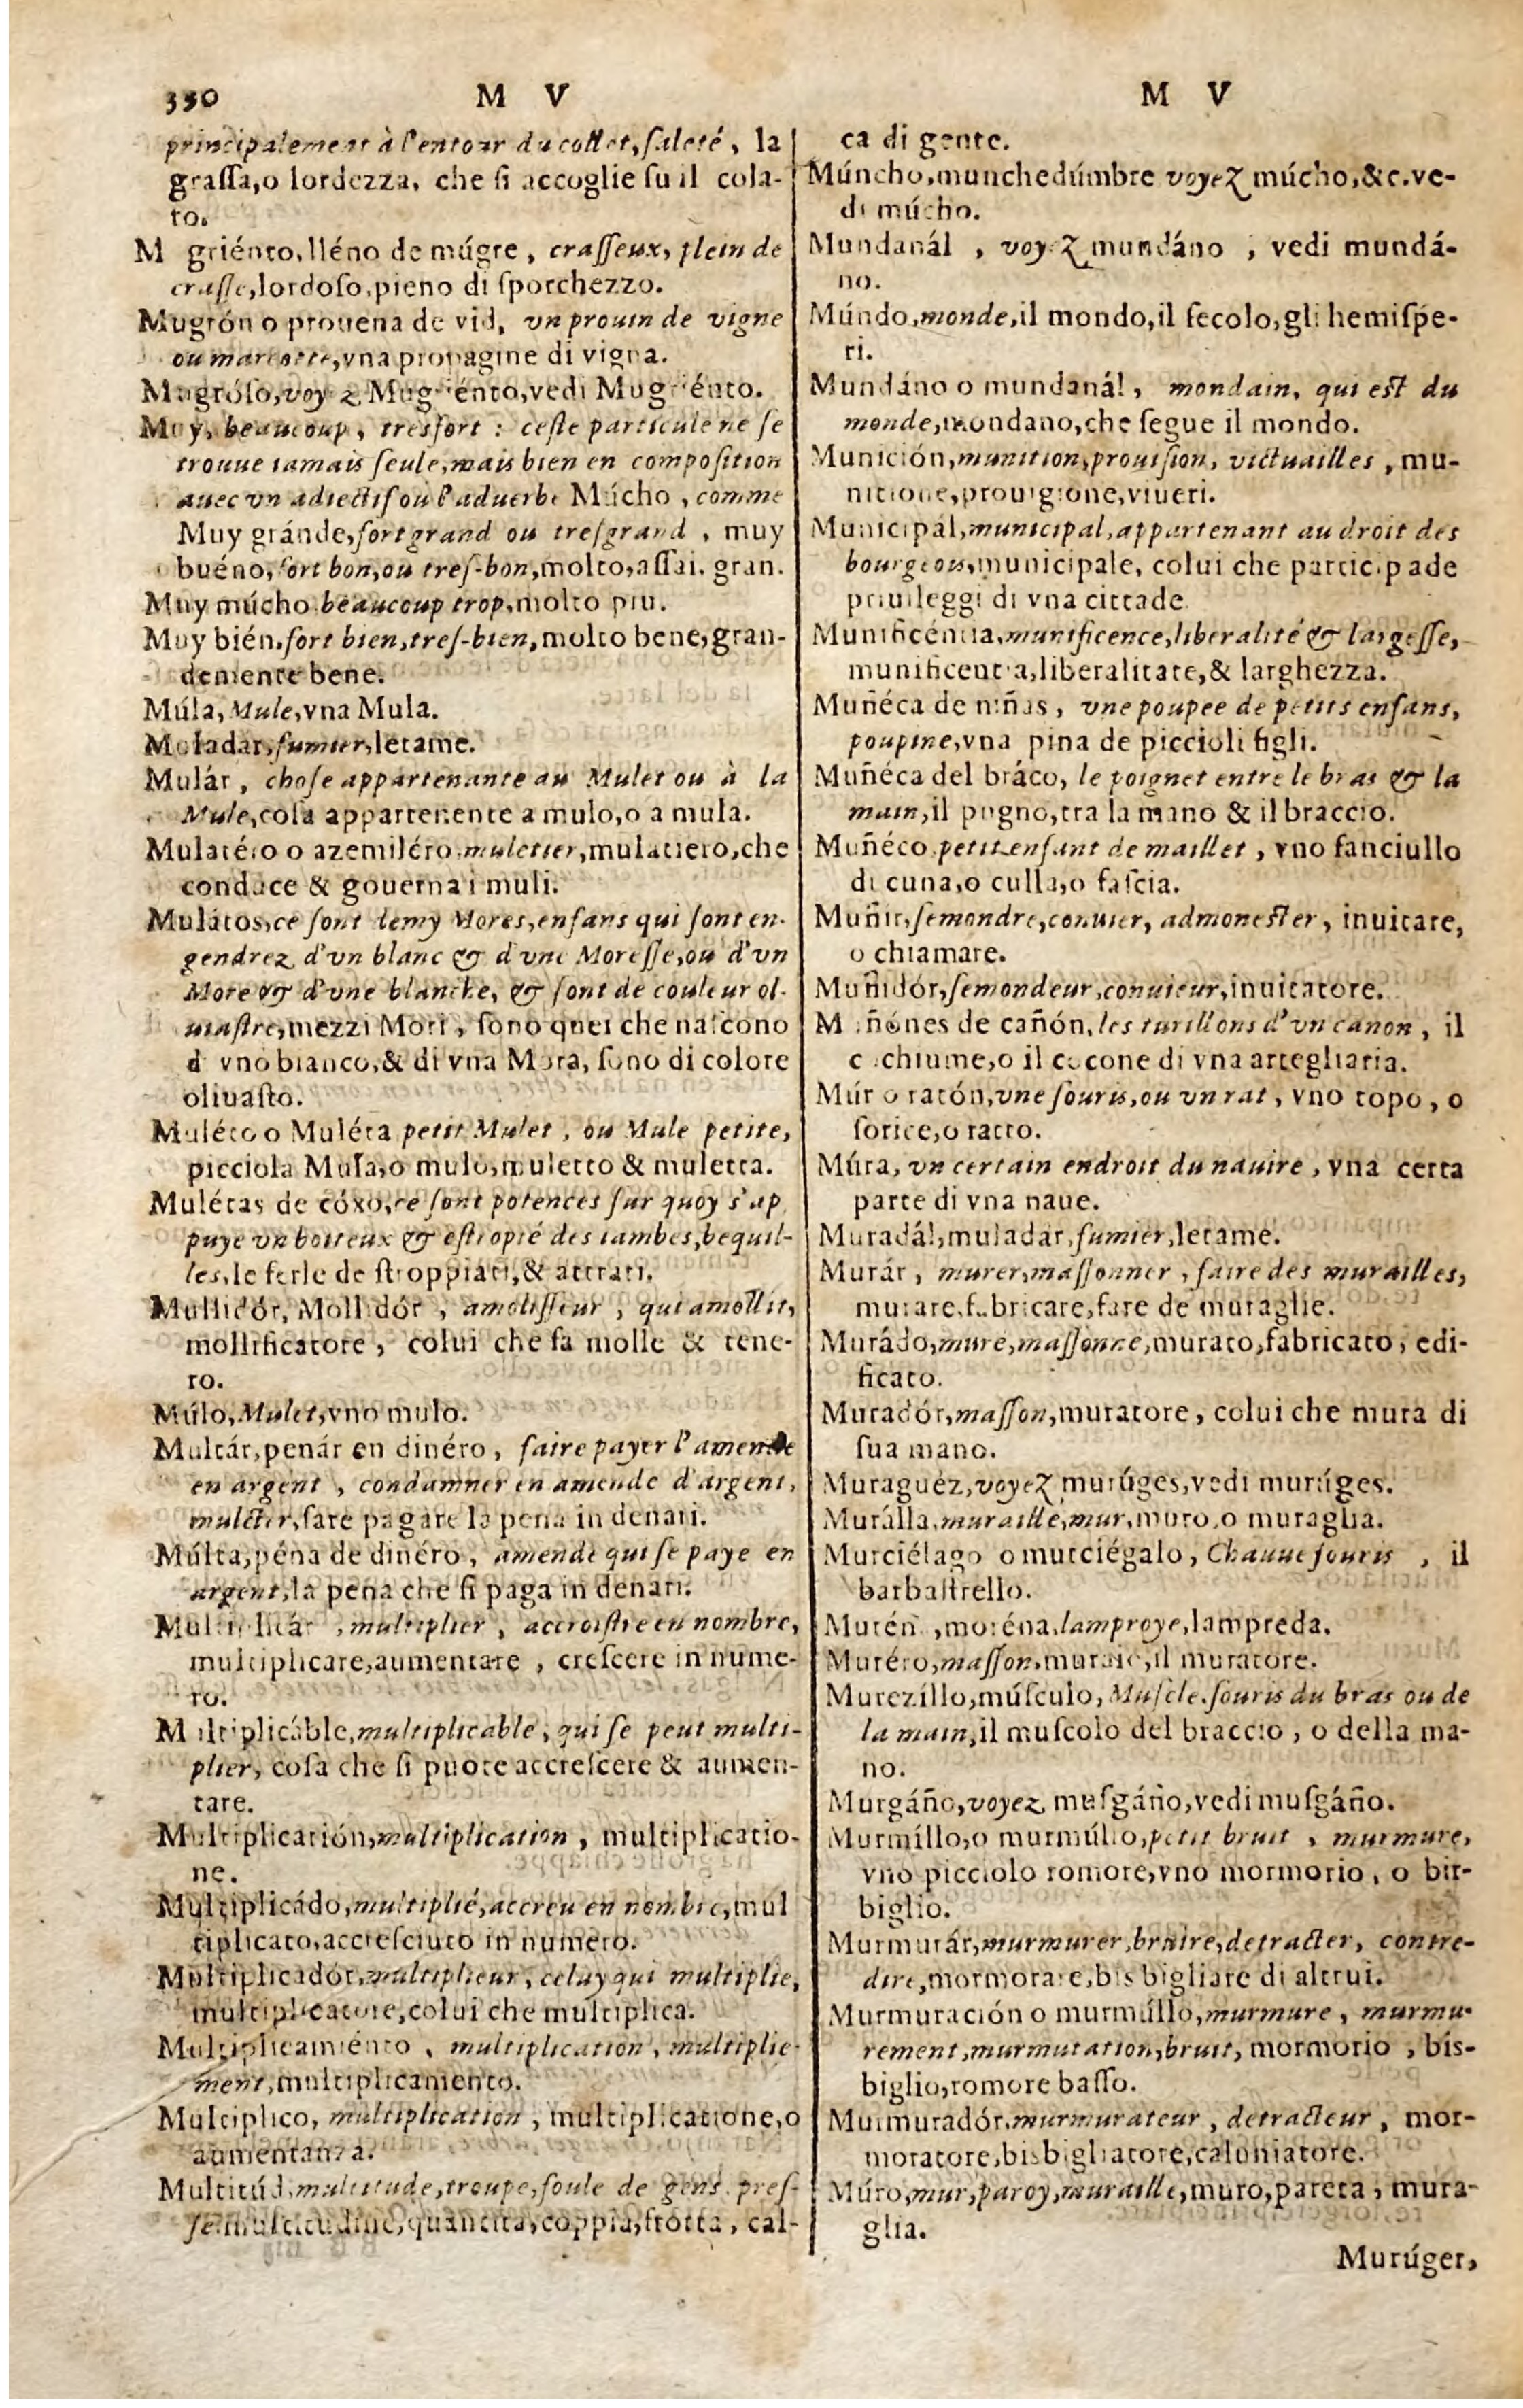 350 M V
principalement à l'entour du collet, ſaleté, la
graſſa,o lordezza, che ſi accoglie ſu il cola-
to.
M griénto,lléno de múgre, craſſeux, plein de
craſſe,lordoſo,pieno di ſporchezzo.
Mugrón o prouena de vid, vn prouin de vigne
ou marcotte,vna propagine di vigna.
Mugróſo,voyez Mugriénto,vedi Mugriénto.
Muy, beaucoup, tresfort : ceſte particule ne ſe
trouue iamais ſeule,mais bien en compoſition
auec vn adiectif ou l'aduerbe Múcho, comme
Muy gránde,fort grand ou treſgrand, muy
buéno, fort bon,ou treſ-bon,molto,aſſai. gran.
Muy múcho beaucoup trop,molto piu.
Muy bién,fort bien,treſ-bien,molto bene,gran-
demente bene.
Múla, Mule,vna Mula.
Moladar,fumier,letame.
Mulár, choſe appartenante au Mulet ou à la
Mule,coſa appartenente a mulo,o a mula.
Mulatéro o azemiléro,muletier,mulatiero,che
conduce & gouerna i muli.
Mulátos,ce ſont demy Mores,enfans qui ſont en-
gendrez d'vn blanc & d'vne Moreſſe,ou d'vn
More & d'vne blanche, & ſont de couleur ol-
uiaſtre,mezzi Mori, ſono quei che naſcono
d vno bianco,& di vna Mora, ſono di colore
oliuaſto.
Muléto o Muléta petit Mulet, ou Mule petite,
picciola Mula,o mulo,muletto & muletta.
Mulétas de cóxo,ce ſont potences ſur quoy s'ap
puye vn boiteux & eſtropié des iambes,bequil-
les,le ferle de ſtroppiati,& attrati.
Mullidór, Mollidór, amoliſſeur, qui amollit,
mollificatore, colui che fa molle & tene-
ro.
Múlo,Mulet,vno mulo.
Multár,penár en dinéro, faire payer l'amende
en argent, condamner en amende d'argent,
mulcter,fare pagare la pena in denari.
Múlta,péna de dinéro, amende qui ſe paye en
argent,la pena che ſi paga in denari.
Multiplicár, multiplier, accroiſtre en nombre,
multiplicare,aumentare, creſcere in nume-
ro.
M ltiplicáble,multiplicable, qui ſe peut multi-
plier, coſa che ſi puote accreſcere & aumen-
tare.
Multiplicatión,multiplication, multiplicatio-
ne.
Multiplicádo,multiplié,accreu en nombre,mul
tiplicato,accreſciuto in numero.
Multiplicadór,multiplieur, celuy qui multiplie,
multiplicatore,colui che multiplica.
Multiplicamiénto, multiplication, multiplie-
ment,multiplicamento.
Multiplico, multiplication, multiplicatione,o
aumentanza.
Multitúd,multitude,troupe,foule de gens preſ-
ſe.multitudine,quantita,coppia,frotta, cal-
M V
ca di gente.
Múncho,munchedúmbre voyez múcho,&c.ve-
di múcho.
Mundanál, voyez mundáno, vedi mundá-
no.
Múndo,monde,il mondo,il ſecolo,gli hemiſpe-
ri.
Mundáno o mundanál, mondain, qui eſt du
monde,mondano,che ſegue il mondo.
Munición,munition,prouiſion, victuailles, mu-
nitione,prouigione,viueri.
Municipál,municipal,appartenant au droit des
bourgeous,municipale, colui che particip ade
priuileggi di vna cittade
Munificéntia,munificence,liberalité & largeſſe,
munificentia,liberalitate,& larghezza.
Muñéca de niñas, vne poupee de petits enfans,
poupine,vna pina de piccioli figli.
Muñéca del bráco, le poignet entre le bras & la
main,il pugno,tra la mano & il braccio.
Muñéco petit enfant de maillet, vno fanciullo
di cuna,o culla,o faſcia.
Muñir,ſemondre,conuier, admoneſter, inuitare,
o chiamare.
Muñidór,ſemondeur,conuieur,inuitatore.
M ñónes de cañón,les turillons d'vn canon, il
c chiume,o il cocone di vna artegliaria.
Múr o ratón,vne ſouris,ou vn rat, vno topo, o
ſorice,o ratto.
Múra, vn certain endroit du nauire, vna certa
parte di vna naue.
Muradál,muladar,fumier,letame.
Murár, murer,maſſonner, faire des murailles,
murare,fabricare,fare de muraglie.
Murádo,mure,maſſonne,murato,fabricato, edi-
ficato.
Muradór,maſſon,muratore, colui che mura di
ſua mano.
Muraguéz,voyez murúges,vedi murúges.
Murálla,muraille,mur,muro,o muraglia.
Murciélago o murciégalo, Chauue ſouris, il
barbaſtrello.
Murén ,moréna,lamproye,lampreda.
Muréro,maſſon,muraio,il muratore.
Murezíllo,múſculo, Muſcle.ſouris du bras ou de
la main,il muſcolo del braccio, o della ma-
no.
Murgáño,voyez muſgáño,vedi muſgáño.
Murmíllo,o murmúllo,petit bruit, murmure,
vno picciolo romore,vno mormorio, o bir-
biglio.
Murmurár,murmurer,bruire,detracter, contre-
dire,mormorare,bisbigliare di altrui.
Murmuración o murmúllo,murmure, murmu-
rement,murmutation,bruit, mormorio, bis-
biglio,romore baſſo.
Murmuradór,murmurateur, detracteur, mor-
moratore,bisbigliatore,caluniatore.
Múro,mur,paroy,muraille,muro,pareta, mura-
glia.
Murúger,